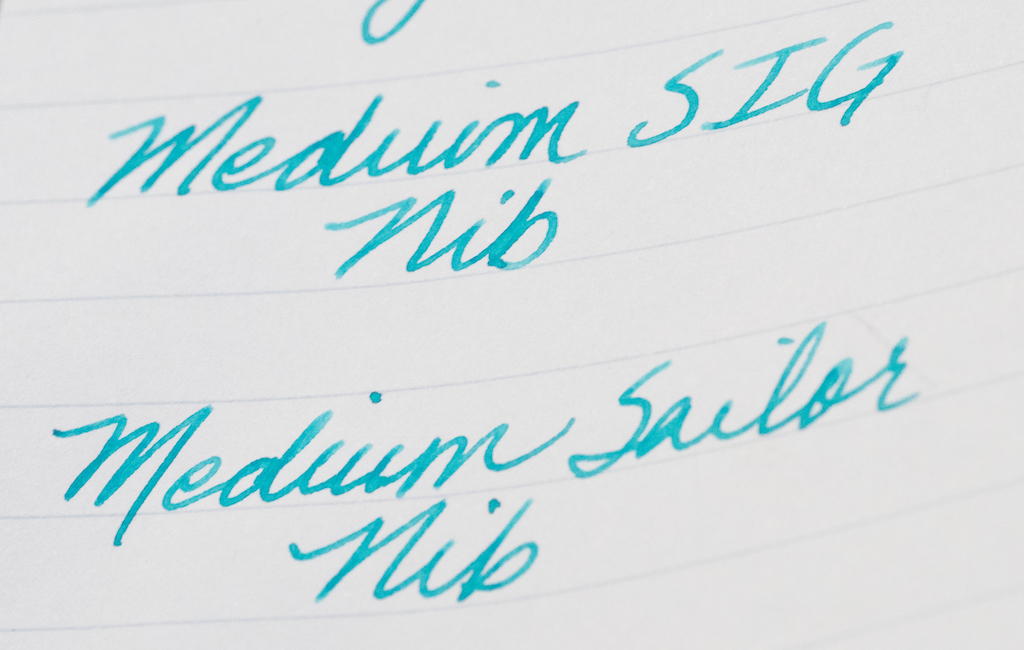 Medium SIG
Nib
Medium Sailor
Nib